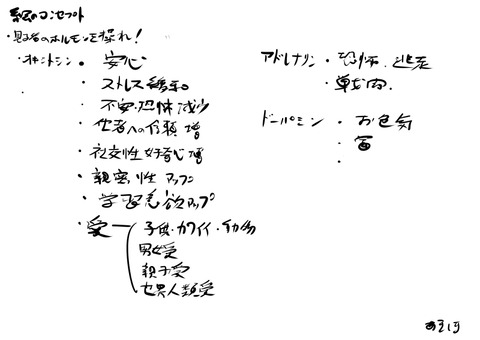 絵のコンセプト
・見る者のホルモンを操れ!
・オキシトシン・安心
・ストレス緩和
・不安・恐怖減少
・他者への信頼増
・社交性好奇心増
・親密性アップ
・学習意欲アップ
・愛 子供・カワイイ・動物
男女愛
親子愛
世界人類愛
アドレナリン・恐怖、逃走
・戦肉
ドーパミン・お色気
・富
・